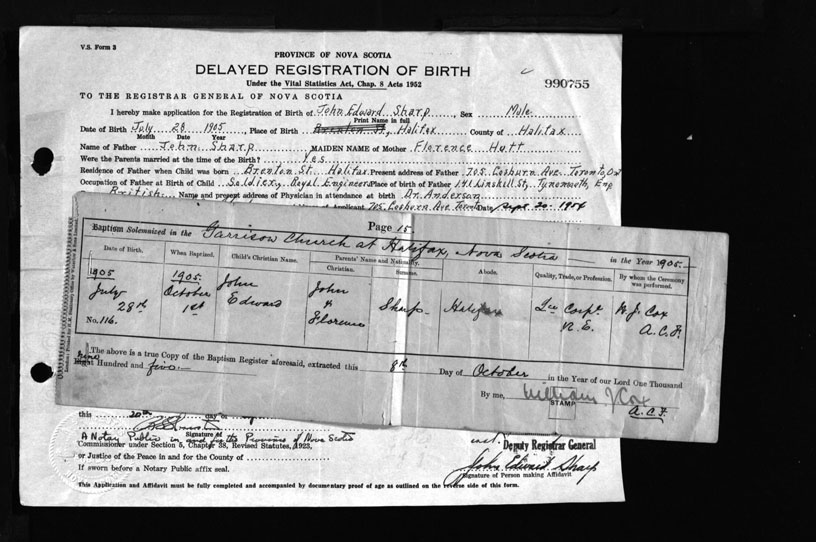 V.S. Form 3
PROVINCE OF NOVA SCOTIA
DELAYED REGISTRATION OF BIRTH
990755
Under the Vital Statistics Act, Chap. 8 Acts 1952
TO THE REGISTRAR GENERAL OF NOVA SCOTIA
I hereby make application for the Registration of Birth of John Edward Sharp Sex Male
Print Name in full
Date of Birth July 28 1905 Place of Birth Brenton St, Halifax County of Halifax
Month Date Year
Name of Father John Sharp MAIDEN NAME of Mother Florence Hutt
Were the Parents married at the time of the Birth? Yes
Residence of Father when Child was born Brenton St. Halifax Present address of Father 705 Coxburn Ave. Toronto, Ont
Occupation of Father at Birth of Child Soldier, Royal Engineers Place of birth of Father 141 Linskill St, Tynemouth, Eng
British Name and present address of Physician in attendance at birth Dr. Anderson
Applicant 705 Coxburn Ave Toronto Date Sept. 20 1954
Page 15
Baptism Solemnized in the Garrison Church at Halifax, Nova Scotia in the Year 1905
Date of Birth. When Baptized. Child's Christian Name. Parents' Name and Nationality. Abode. Quality, Trade, or Profession. By whom the Ceremony was performed.
Christian. Surname.
1905 July 28th 1905. October 1st John Edward John & Florence Sharp Halifax Lce Corpl. R.E. W. J. Cox A.C.F.
No. 116.
The above is a true Copy of the Baptism Register aforesaid, extracted this 8th Day of October in the Year of our Lord One Thousand
Nine Hundred and five.
By me, William J Cox
STAMP.
A.C.F.
this 20th day of
Signature of
A Notary Public in and for the Province of Nova Scotia
Commissioner under Section 5, Chapter 38, Revised Statutes, 1923,
Deputy Registrar General
or Justice of the Peace in and for the County of
John Edward Sharp
If sworn before a Notary Public affix seal.
Signature of Person making Affidavit
This Application and Affidavit must be fully completed and accompanied by documentary proof of age as outlined on the reverse side of this form.